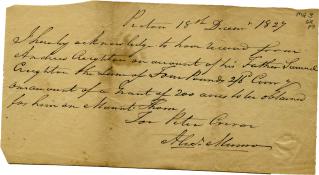 Pictou 18th Decemr 1827
I hereby acknowledge to have received from
Andrew Creighton on account of his Father Samuel
Creighton the Sum of Four Pounds 2/6 Curr y
on account of a Grant of 200 acres to be obtained
for him on Mount Thom
for Peter Crerar
Alexr Munro
MG 3